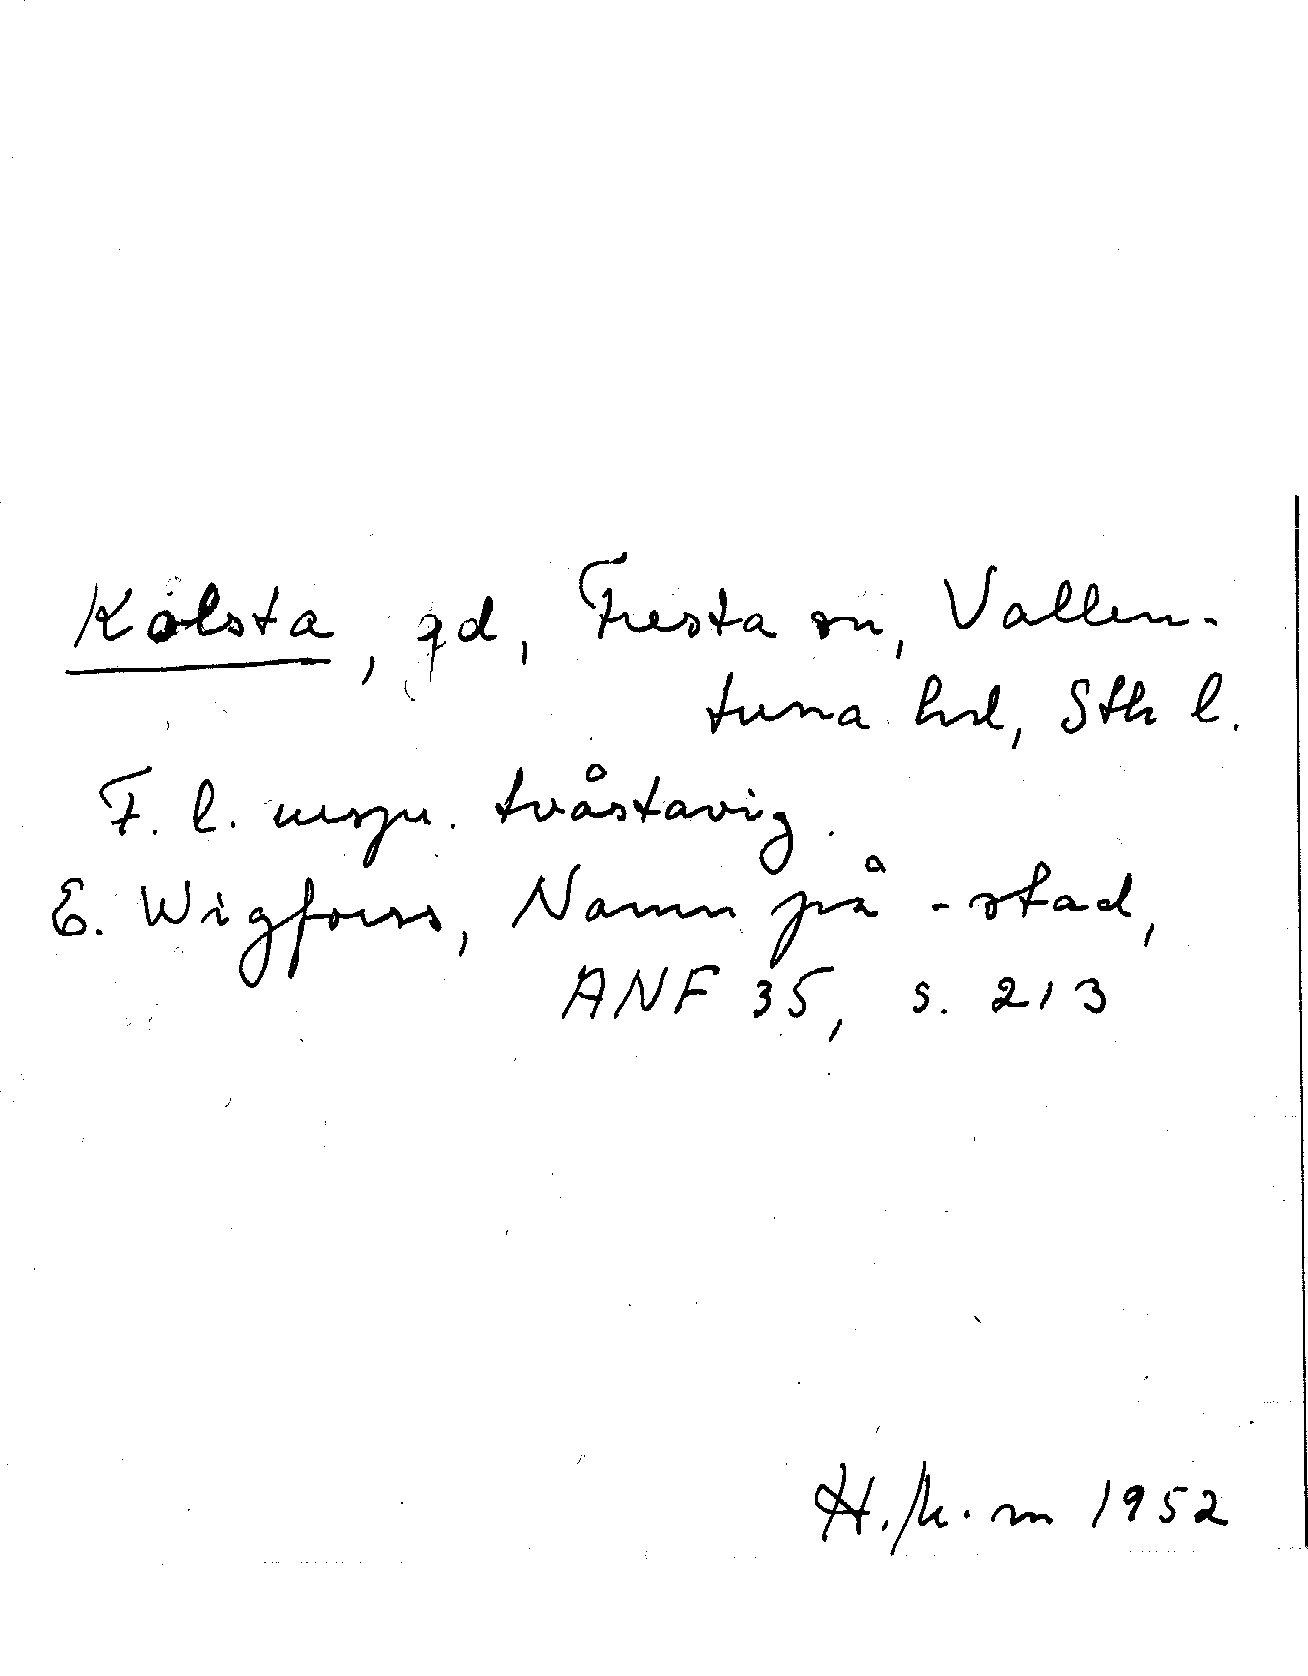 Kålsta, gd, Fresta sn, Vallen-
tuna hd, Sth l.
F. l. urspr. tvåstavig.
E. Wigforss, Namn på -stad,
ANF 35, s. 213
1952